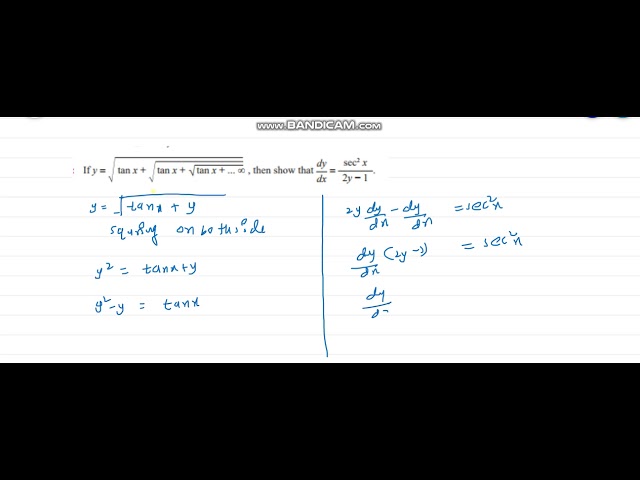 WWW.BANDICAM.COM
: If y = √(tan x + √(tan x + √(tan x + ... ∞))) , then show that dy/dx = sec² x / 2y − 1.
y = √tanx + y
squring on both side
y² = tanx+y
y² - y = tanx
2y dy/dx - dy/dx = sec²x
dy/dx (2y - 1) = sec²x
dy